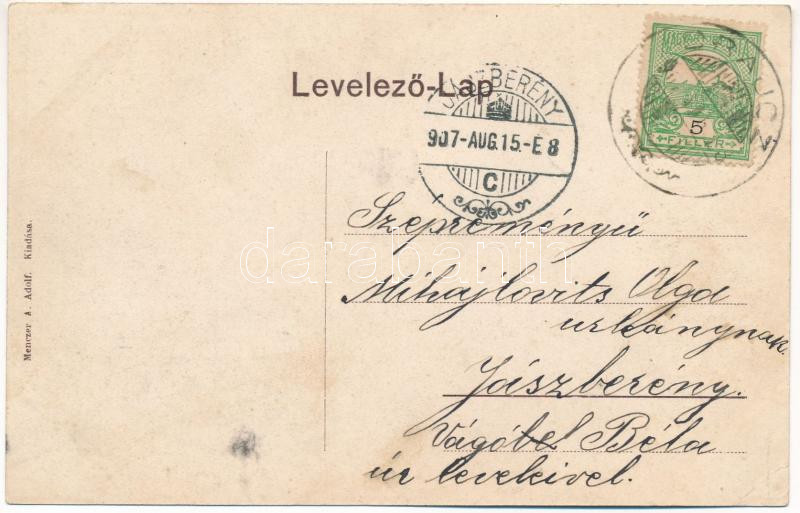 Levelező-Lap
JÁSZBERÉNY
907-AUG.15.-E 8
C
5
FILLÉR
Szépreményű
Mihajlovits Olga
urhánynak
Jászberény.
Vágó Béla
úr levelével.
Menczer A. Adolf. Kiadása.
darabanth